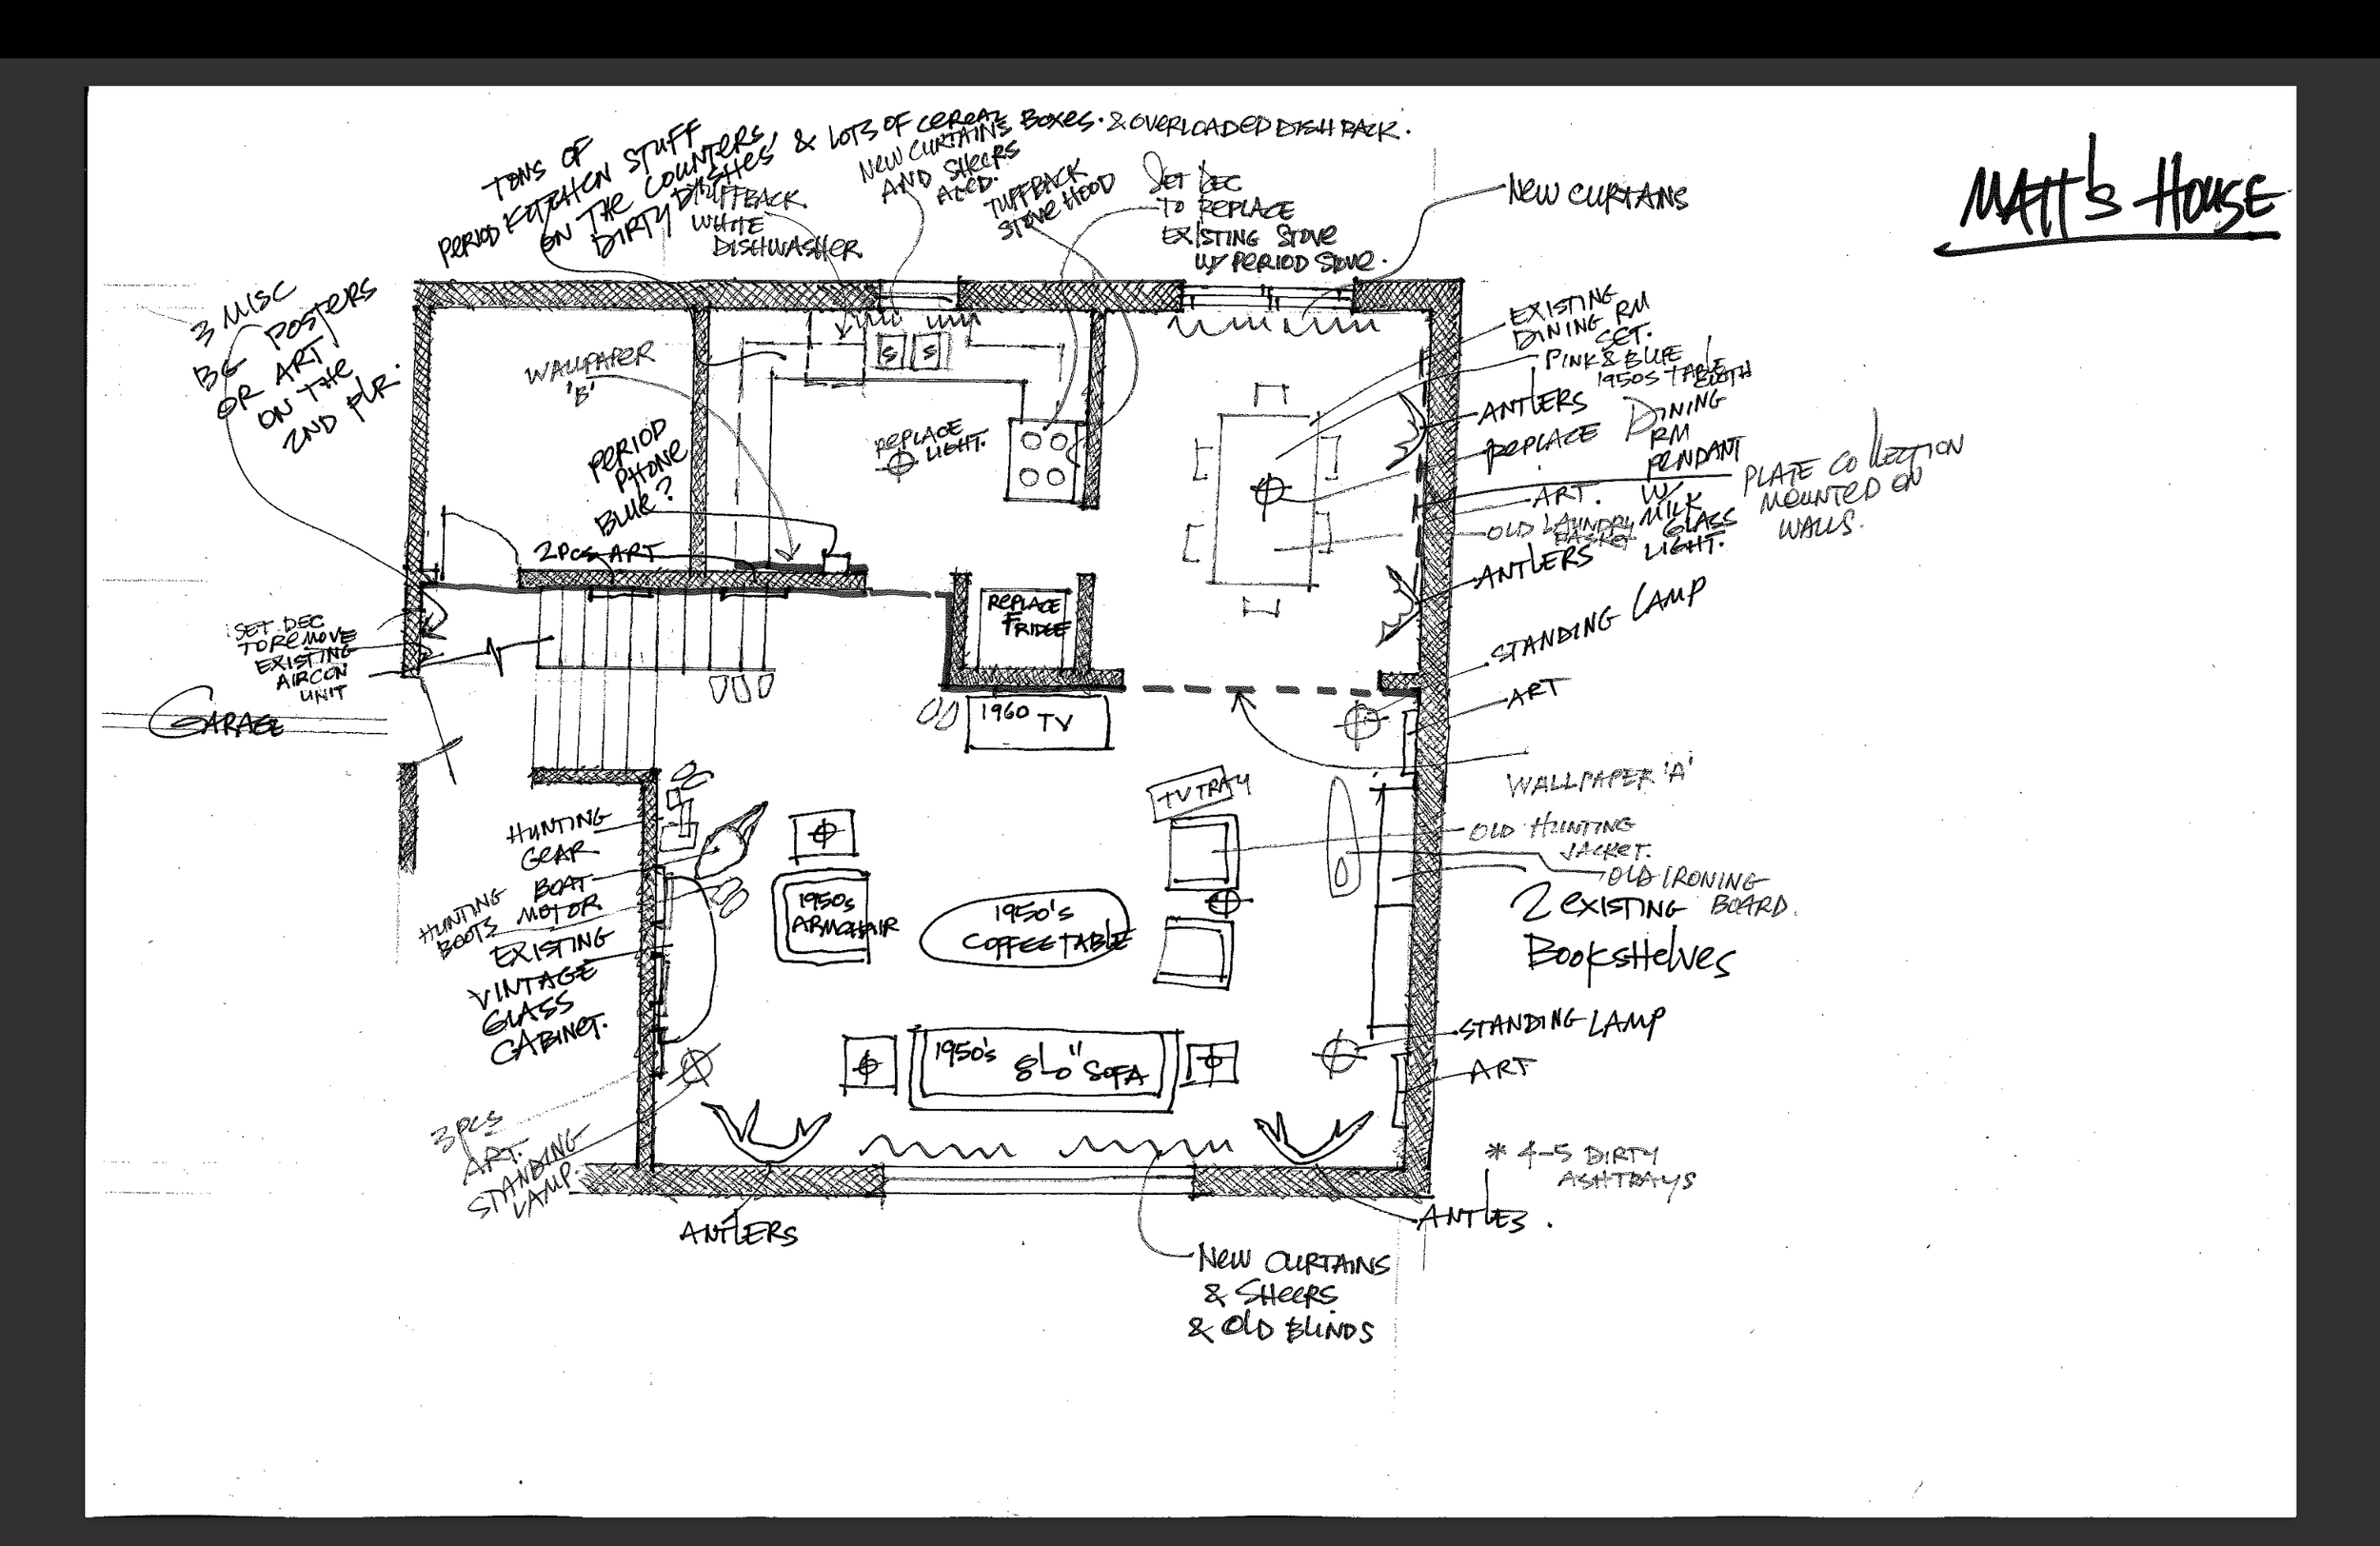 MATT'S HOUSE
TONS OF
PERIOD KITCHEN STUFF
ON THE COUNTERS,
DIRTY DISHES & LOTS OF CEREAL BOXES. & OVERLOADED DISH RACK.
TUFFBACK
WHITE
DISHWASHER.
NEW CURTAINS
AND SHEERS
TUFFBACK
STOVE HOOD
SET DEC
TO REPLACE
EXISTING STOVE
W/ PERIOD STOVE.
NEW CURTANS
3 MISC
BG POSTERS
OR ART
ON THE
2ND FLR.
WALLPAPER
'B'
PERIOD
PHONE
BLUE?
2 PCS ART
S S
REPLACE
LIGHT.
REPLACE
FRIDGE
EXISTING
DINING RM
SET.
PINK & BLUE
1950S TABLE
CLOTH
ANTLERS
REPLACE DINING
RM
PENDANT
W/
MILK
GLASS
LIGHT.
ART.
OLD LAUNDRY
BASKET
PLATE COLLECTION
MOUNTED ON
WALLS.
ANTLERS
STANDING LAMP
ART
SET DEC
TO REMOVE
EXISTING
AIRCON
UNIT
GARAGE
1960 TV
WALLPAPER 'A'
TV TRAY
OLD HUNTING
JACKET.
OLD IRONING
BOARD.
2 EXISTING
BOOKSHELVES
HUNTING
GEAR
BOAT
MOTOR
HUNTING
BOOTS
EXISTING
VINTAGE
GLASS
CABINET.
1950s
ARMCHAIR
1950's
COFFEE TABLE
1950's 8'0" SOFA
STANDING LAMP
ART
3 PCS
ART.
STANDING
LAMP.
* 4-5 DIRTY
ASHTRAYS
ANTLERS
ANTLES.
NEW CURTAINS
& SHEERS
& OLD BLINDS